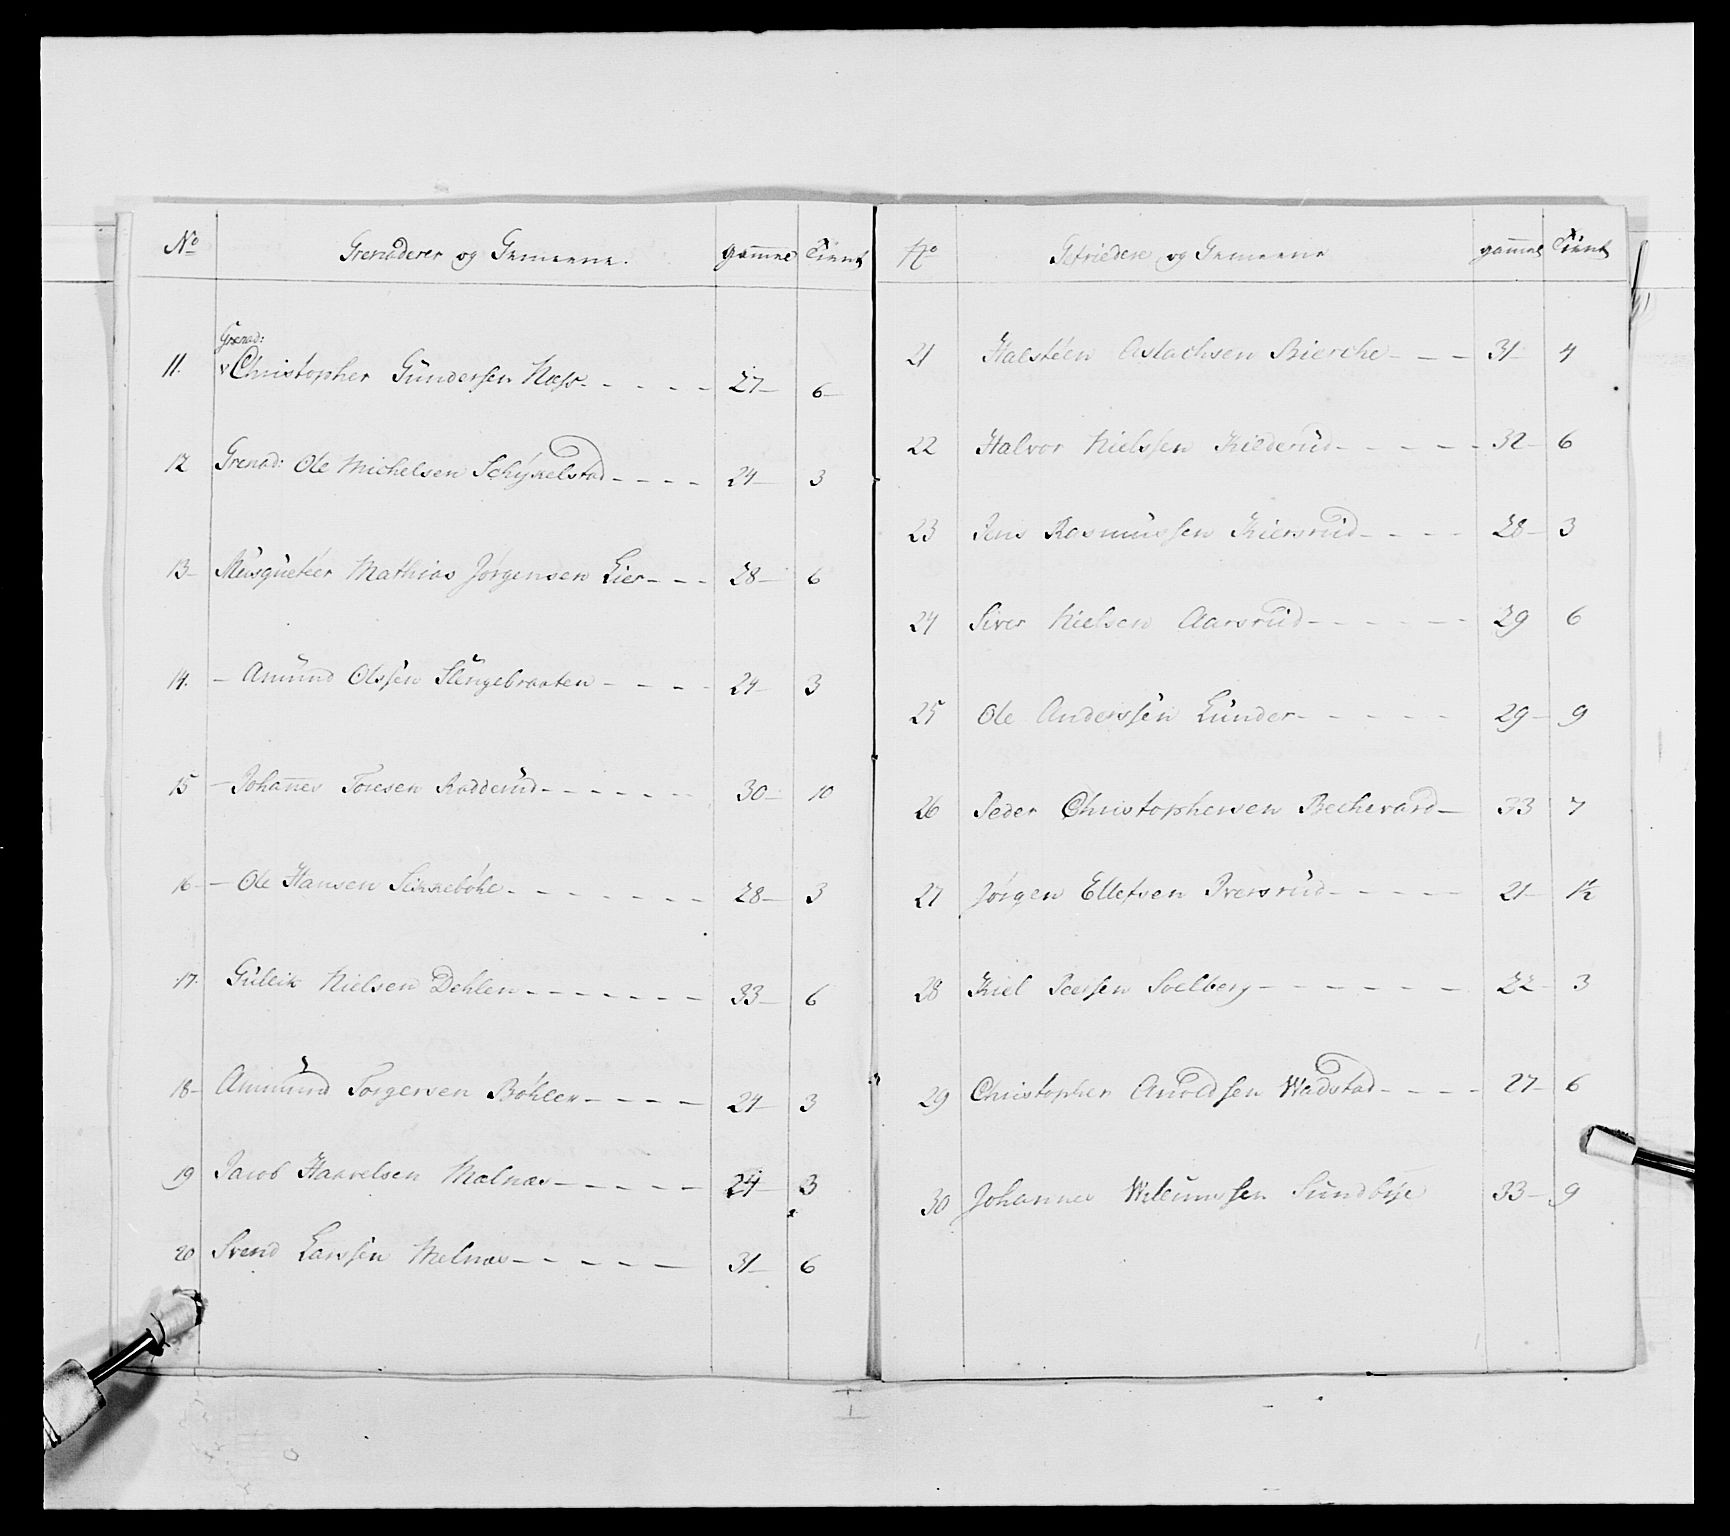 No Grenaderer og Gemeene. gammel Tient
Grenad:
11. Christopher Gundersen Næss 27 6
12 Grenad: Ole Michelsen Schjkelstad 24 3
13 Musqueteer Mathias Jørgensen Lier 28 6
14. Amund Olssen Slengebraaten 24 3
15 Johannes Toresen Rodderud 30 10
16 Ole Hansen 28 3
17. Guleik Nielsen Dehlen 33 6
18 Ammund Torgersen Bøhler 24 3
19 Jacob Haavelsen Melnæs 24 3
20 Svend Larssen Melnæs 31 6
No Gefriedere og Gemeene gammel Tient
21 Halsteen Aslachsen Bierche 31 4
22 Halvor Nielssen Kilderud 32 6
23 Jens Rasmussen Kiersrud 28 3
24 Siver Nielsen Aarsrud 29 6
25 Ole Anderssen Lunder 29 9
26 Peder Christophersen Bechevard 33 7
27 Jørgen Ellefsen Iversrud 21 1½
28 Kiel Peersen Soelberg 22 3
29 Christopher Anoldsen Wadstad 27 6
30 Johannes Willumssen Sundbye 33 9